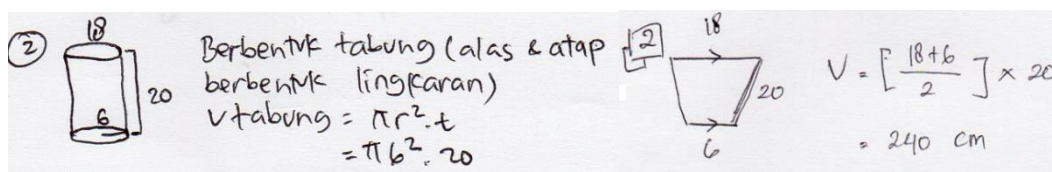 ② 18
20
6
Berbentuk tabung (alas & atap
berbentuk lingkaran)
Vtabung = πr². t
= π6². 20
2
18
20
6
V = [ 18+6 / 2 ] × 20
= 240 cm